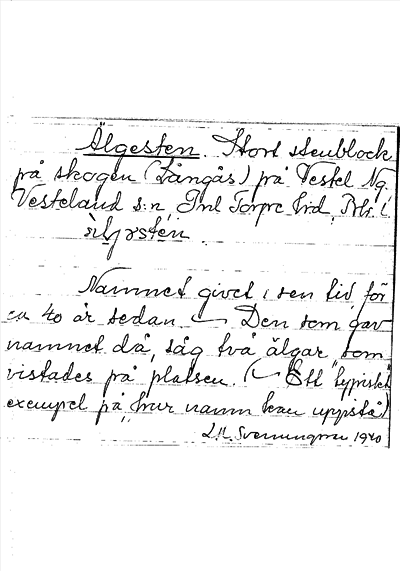 Älgesten. Stort stenblock
på skogen (Långås) på Vestel Ng.
Vesteland s:n
Namnet givet i sen tid för
ca 40 år sedan — Den som gav
namnet då, såg två älgar som
vistades på platsen. (— Ett "typiskt"
exempel på "hur namn kan uppstå)
1940